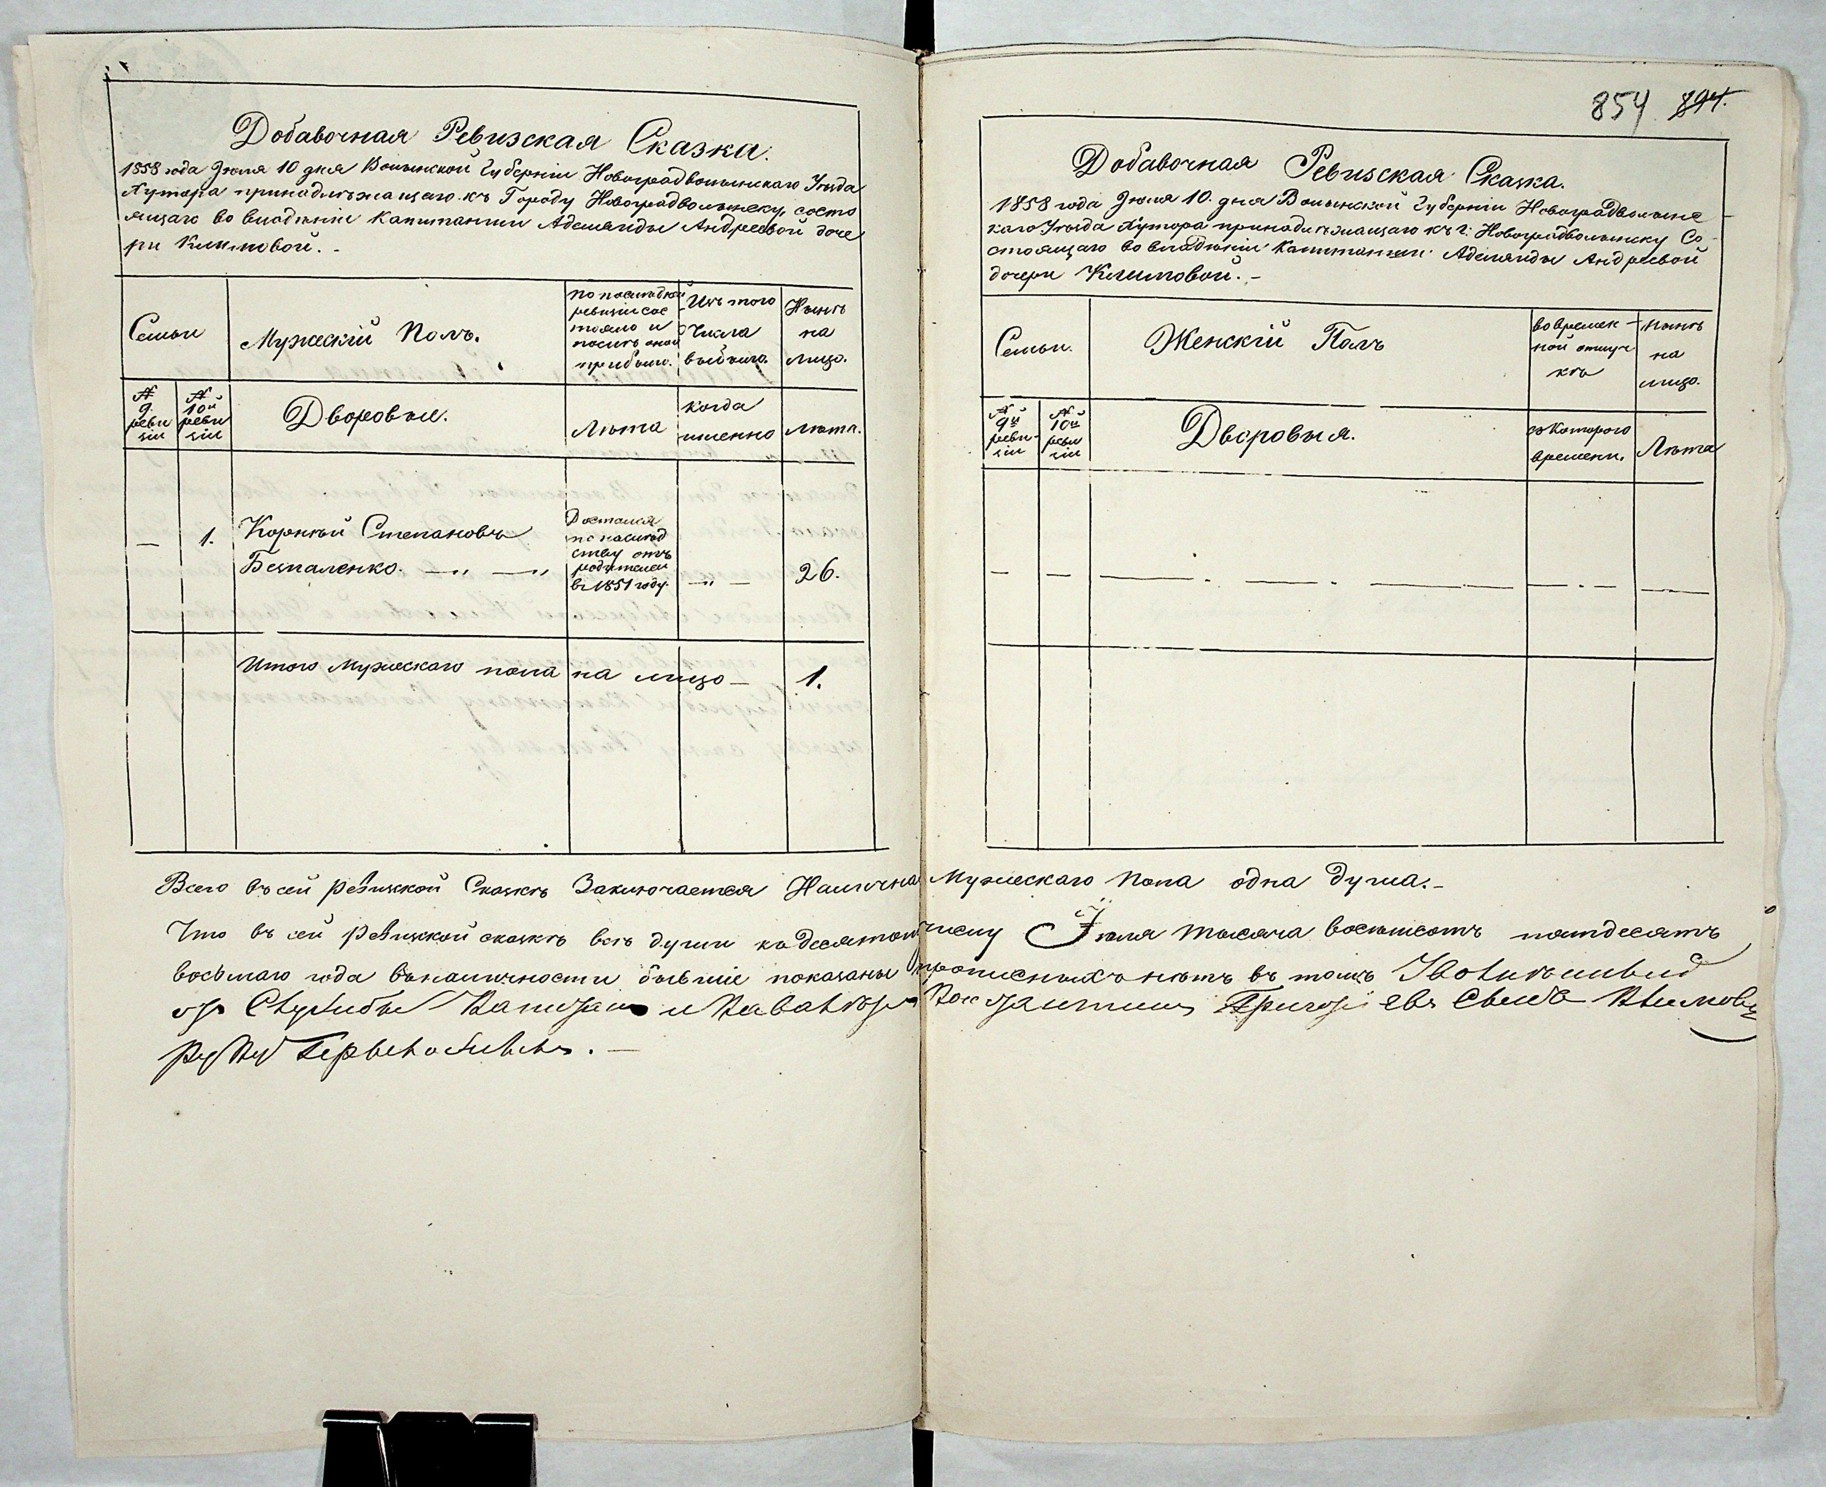 Добавочная Ревизская Сказка.
1858 года Июля 10 дня Волынской Губерніи Новоградволынскаго Уѣзда
Хутора принадлѣжащаго къ Городу Новоградволынску, состо
ящаго во владѣніи Капитанши Аделаиды Андреевой доче
ри Климовой. -
Семьи
Мужескій Полъ.
По последней
ревизіи сос
тояло и
послѣ оной
прибыло.
Изъ того
Числа
выбыло.
Нынѣ
на
лицо.
№
9.
реви
зіи
№
10й
реви
зіи
Дворовые.
Лѣта
когда
именно
Лѣта.
— 1. Корнѣй Степановъ
Беспаленко. —„ —„
Достался
по наслѣд
ству отъ
родителей
въ 1851 году.
—„—
26.
Итого Мужескаго пола на лицо — 1.
854 894.
Добавочная Ревизская Сказка.
1858 года Июля 10. дня Волынской Губерніи Новоградволынс
каго Уѣзда Хутора принадлѣжащаго къ г. Новоградволынску Со
стоящаго во владѣніи Капитанши Аделаиды Андреевой
дочери Климовой. -
Семьи.
Женскій Полъ
во времен
ной отлуч
кѣ
Нынѣ
на
лицо.
№
9й
реви
зіи
№
10й
реви
зіи
Дворовыя.
съ Котораго
времени.
Лѣта
Всего въ сей ревизской Сказкѣ Заключается Налично Мужескаго Пола одна душа. -
Что въ сей ревизской сказкѣ всѣ души къ десятому числу Іюля тысяча восемьсотъ пятдесятъ
восьмаго года въ наличности бывшіе показаны и прописныхъ нѣтъ въ томъ
Службы Капитан и Кавалеръ Константинъ Григорьевъ Сынъ Климовъ
руку